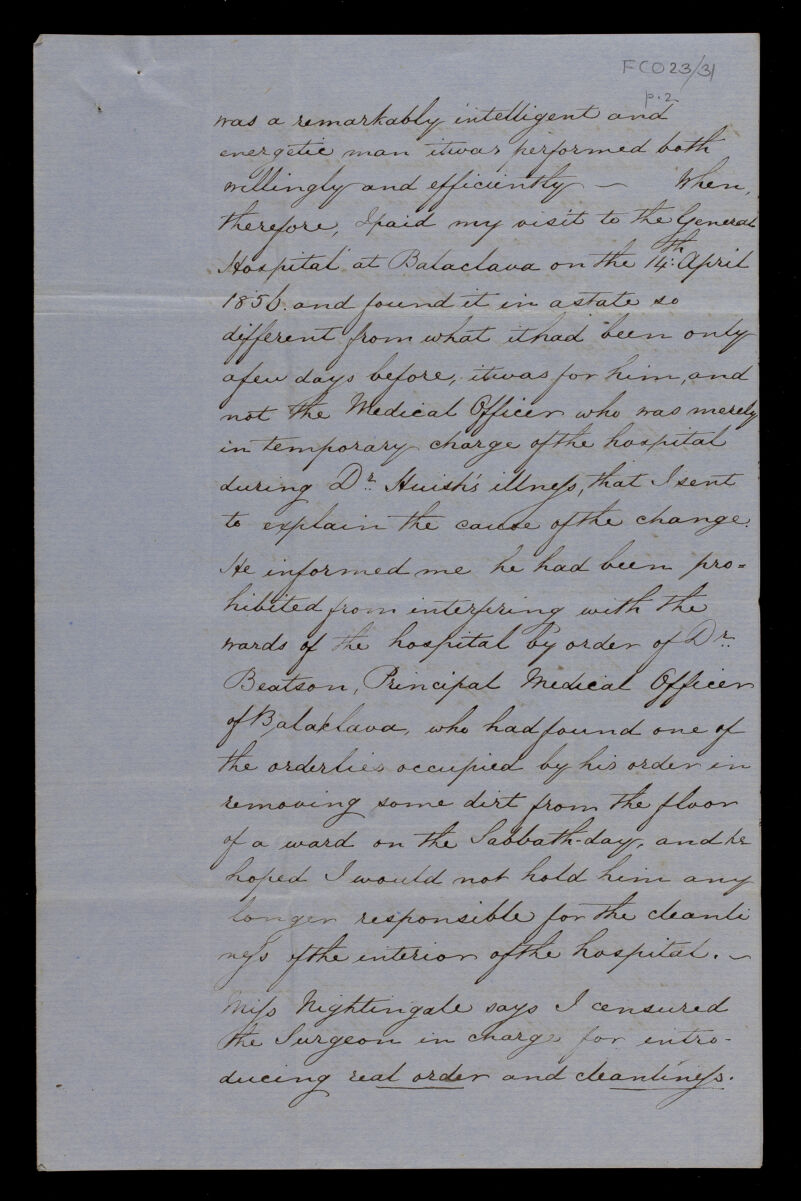 FCO23/31
p.2
was a remarkably intelligent and
energetic man it was performed both
willingly and efficiently — When,
therefore, I paid my visit to the General
Hospital at Balaclava on the 14th April
1856. and found it in a state so
different from what it had been only
a few days before, it was for him, and
not the Medical Officer who was merely
in temporary charge of the hospital
during Dr. Huish's illness, that I sent
to explain the cause of the change.
He informed me he had been pro=
hibited from interfiring with the
wards of the hospital by order of Dr.
Beatson, Principal Medical Officer
of Balaklava, who had found one of
the orderlies occupied by his order in
removing some dirt from the floor
of a ward on the Sabbath-day, and he
hoped I would not hold him any
longer responsible for the cleanli
ness of the interior of the hospital. —
Miss Nightingale says I censured
the Surgeon in charge for intro-
ducing real order and cleanliness.